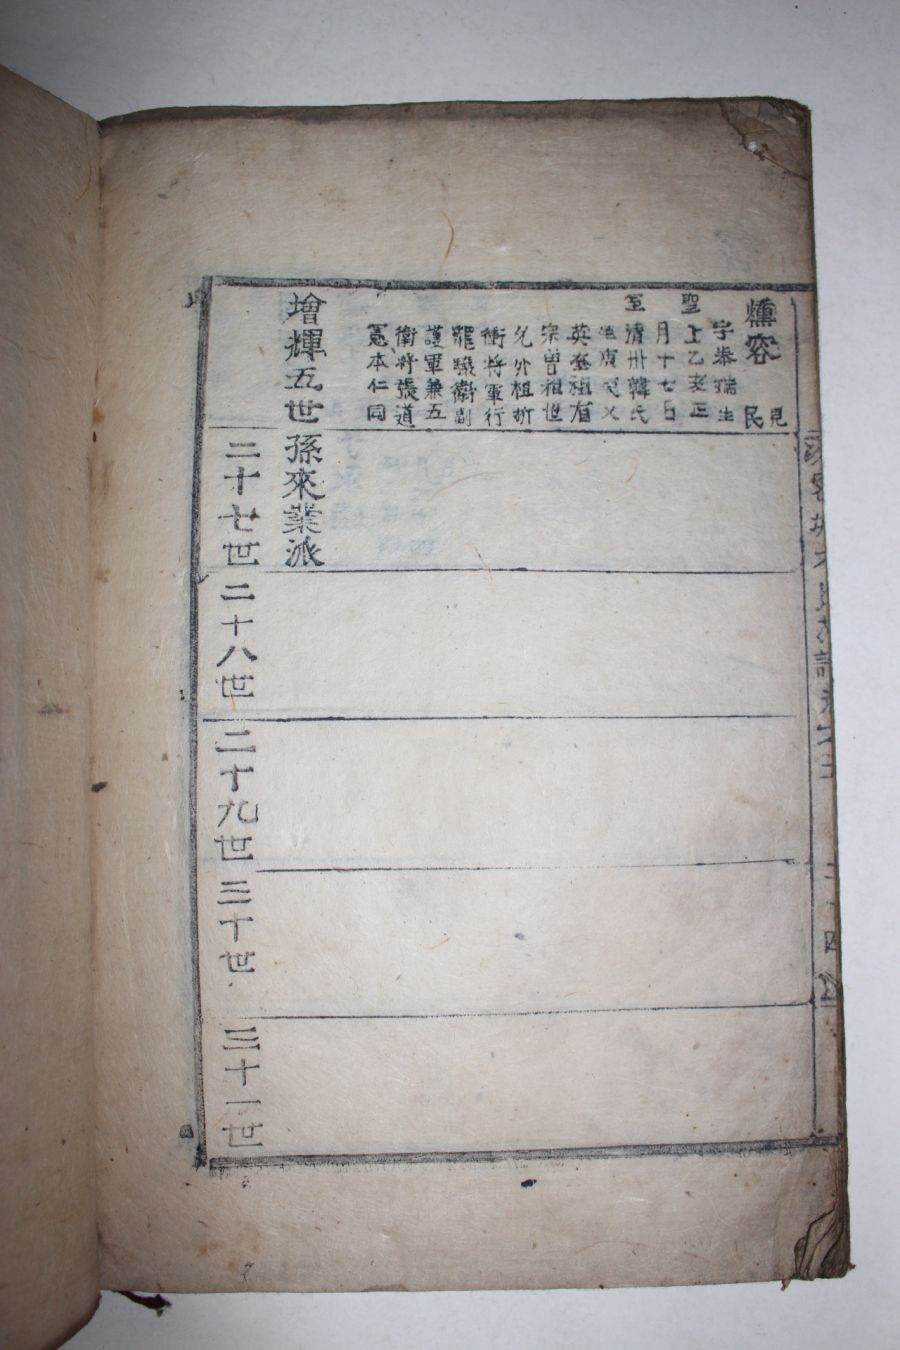 燻容
見民
字泰瑞生
聖上乙亥正
月十七日
室淸州韓氏
生庚父
英奎祖有
宗曾祖世
允外祖折
衝將軍行
龍驤衛副
護軍兼五
衛將張道
憲本仁同
增輝五世孫來業派
二十七世
二十八世
二十九世
三十世
三十一世